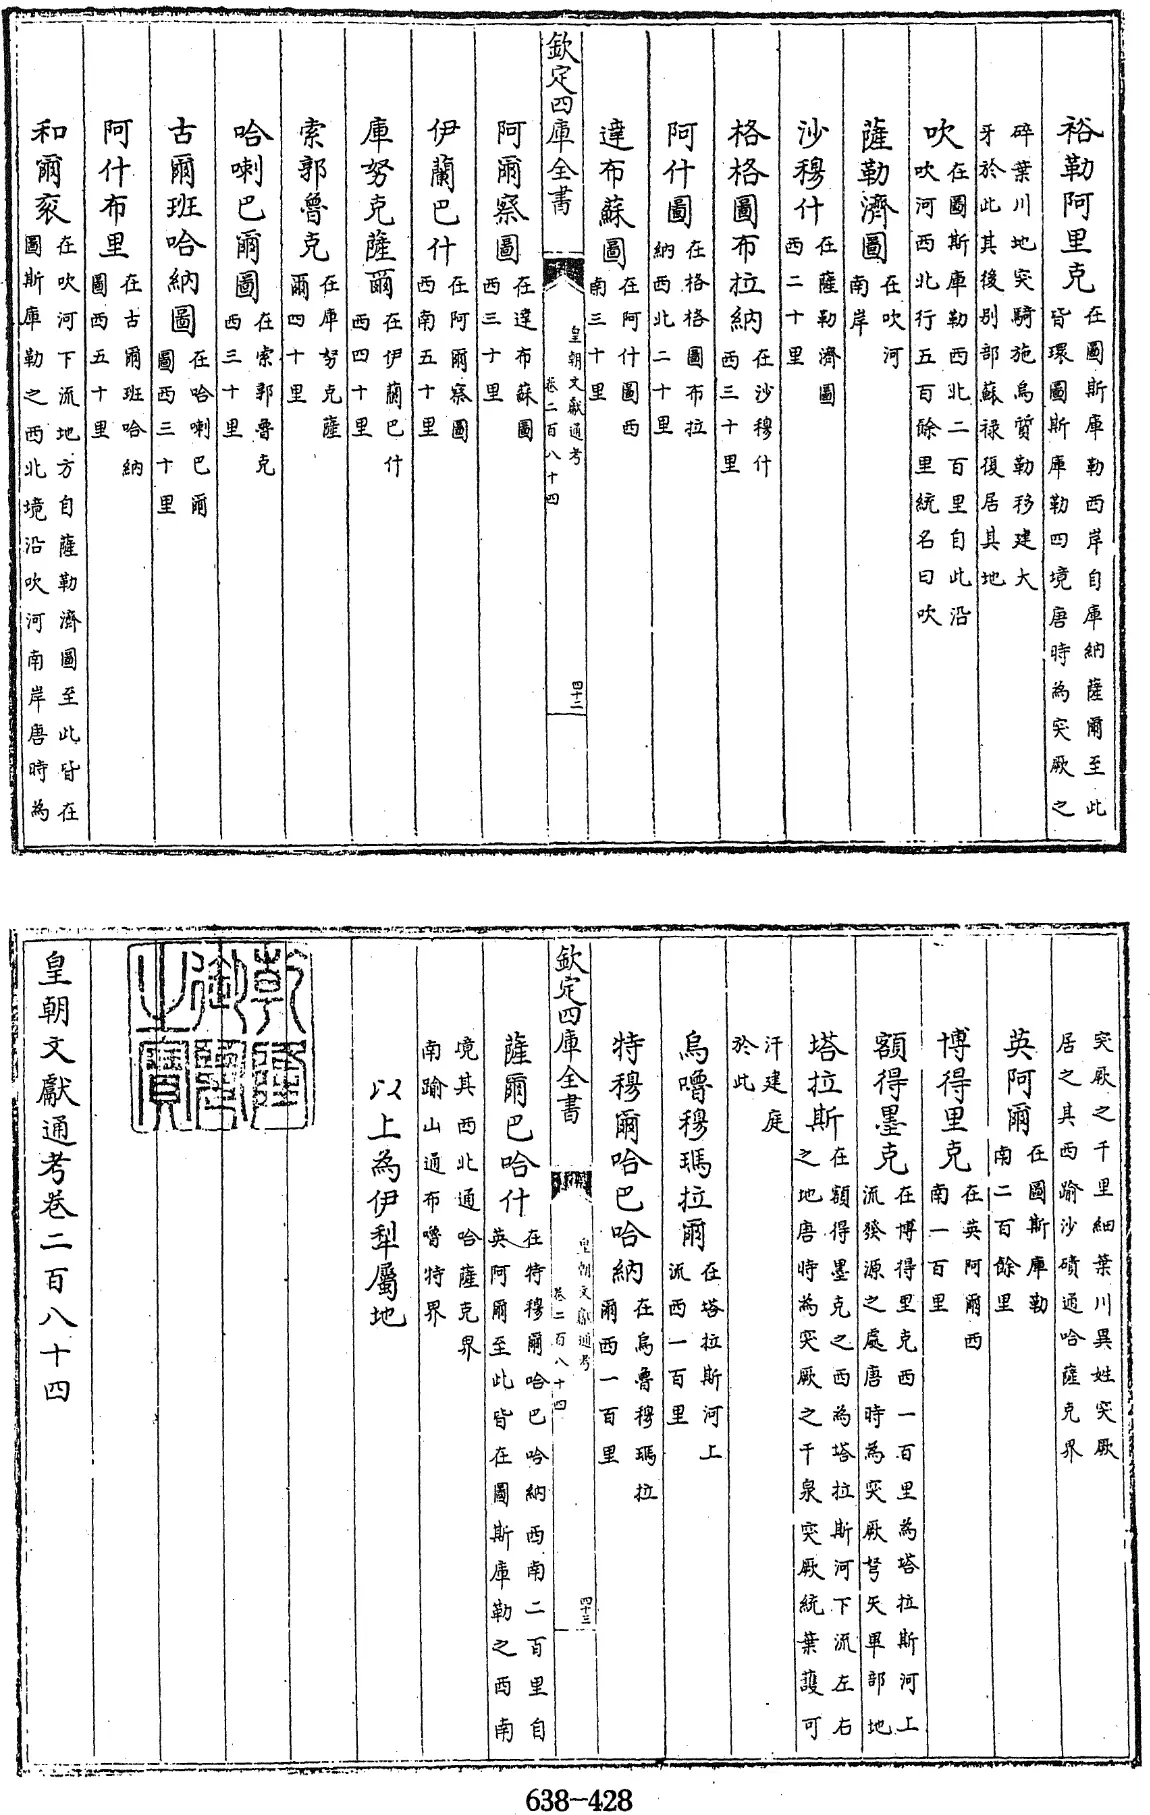 裕勒阿里克在圖斯庫勒西岸自庫納薩爾至此皆環圖斯庫勒四境唐時為突厥之
碎葉川地突騎施烏質勒移建大牙於此其後别部蘇祿復居其地
吹在圖斯庫勒西北二百里自此沿吹河西北行五百餘里統名曰吹
薩勒濟圖在吹河南岸
沙穆什在薩勒濟圖西二十里
格格圖布拉納在沙穆什西三十里
阿什圖在格格圖布拉納西北二十里
達布蘇圖在阿什圖西南三十里
欽定四庫全書
皇朝文獻通考
卷二百八十四
四十二
阿爾察圖在達布蘇圖西三十里
伊蘭巴什在阿爾察圖西南五十里
庫努克薩爾在伊蘭巴什西四十里
索郭魯克在庫努克薩爾四十里
哈喇巴爾圖在索郭魯克西三十里
古爾班哈納圖在哈喇巴爾圖西三十里
阿什布里在古爾班哈納圖西五十里
和爾衮在吹河下流地方自薩勒濟圖至此皆在圖斯庫勒之西北境沿吹河南岸唐時為
突厥之千里細葉川異姓突厥居之其西踰沙磧通哈薩克界
英阿爾在圖斯庫勒南二百餘里
博得里克在英阿爾西南一百里
額得墨克在博得里克西一百里為塔拉斯河上流發源之處唐時為突厥弩矢畢部地
塔拉斯在額得墨克之西為塔拉斯河下流左右之地唐時為突厥之千泉突厥統葉護可
汗建庭於此
烏嚕穆瑪拉爾在塔拉斯河上流西一百里
特穆爾哈巴哈納在烏魯穆瑪拉爾西一百里
欽定四庫全書
皇朝文獻通考
卷二百八十四
四十三
薩爾巴哈什在特穆爾哈巴哈納西南二百里自英阿爾至此皆在圖斯庫勒之西南
境其西北通哈薩克界南踰山通布嚕特界
以上為伊犁屬地
乾隆御覽之寶
皇朝文獻通考卷二百八十四
638-428